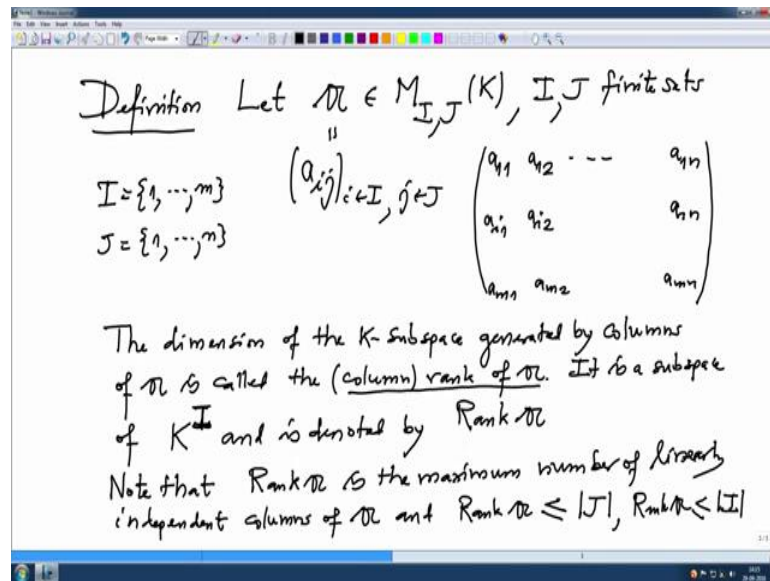 Note1 - Windows Journal
File Edit View Insert Actions Tools Help
Page Width
Definition Let 𝔄 ∈ M_{I,J}(K), I, J finite sets
I = {1, ..., m}
J = {1, ..., n}
= (a_{ij})_{i∈I, j∈J}
a_{11} a_{12} --- a_{1n}
a_{i1} a_{i2} a_{in}
a_{m1} a_{m2} a_{mn}
The dimension of the K-subspace generated by columns
of 𝔄 is called the (column) rank of 𝔄. It is a subspace
of K^I and is denoted by Rank 𝔄
Note that Rank 𝔄 is the maximum number of linearly
independent columns of 𝔄 and Rank 𝔄 ≤ |J|, Rank 𝔄 ≤ |I|
1/1
1